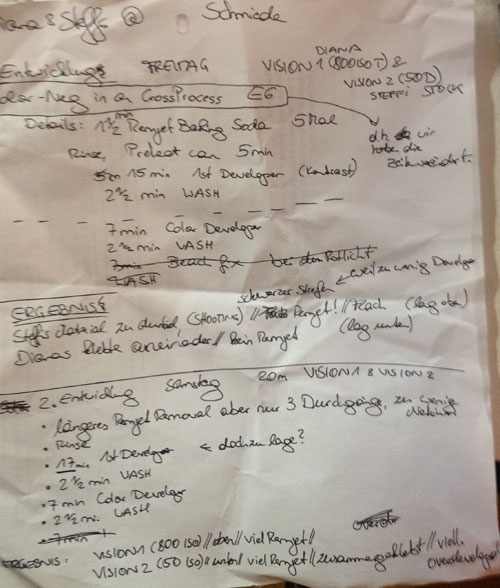 Diana & Steffi @ Schmiede
Entwicklung FREITAG
DIANA
VISION 1 (800 ISO T) &
VISION 2 (50D)
STEFFI STOCK
Color-Neg in an CrossProcess E6
Details: 1 1/2 min Remjet Baking Soda 5 Mal
d.h. wir
haben die
Zeit
Rinse, Preheat can 5min
15 min 1st Developer (Kontrast)
2 1/2 min WASH
7 min Color Developer
2 1/2 min WASH
7min Bleach fix bei den Rotlicht
WASH
schwarzer Streifen ← weil zu wenig Developer
ERGEBNIS
Steffis Material zu dunkel, (SHOOTING) // Remjet! // Flach (lag oben)
Dianas klebte aneinander // kein Remjet (lag unten)
2. Entwicklung Samstag 20m VISION 1 & VISION 2
• längeres Remjet Removal aber nur 3 Durchgänge, zu wenig
• Rinse
• 17min 1st Developer ← doch zu lage?
• 2 1/2 min WASH
• 7 min Color Developer
• 2 1/2 min. WASH
• 7min
ERGEBNIS: VISION 1 (800 ISO) // oben // viel Remjet //
VISION 2 (50 ISO) // unten // viel Remjet // zusammengeklebt // viell.
overdeveloped